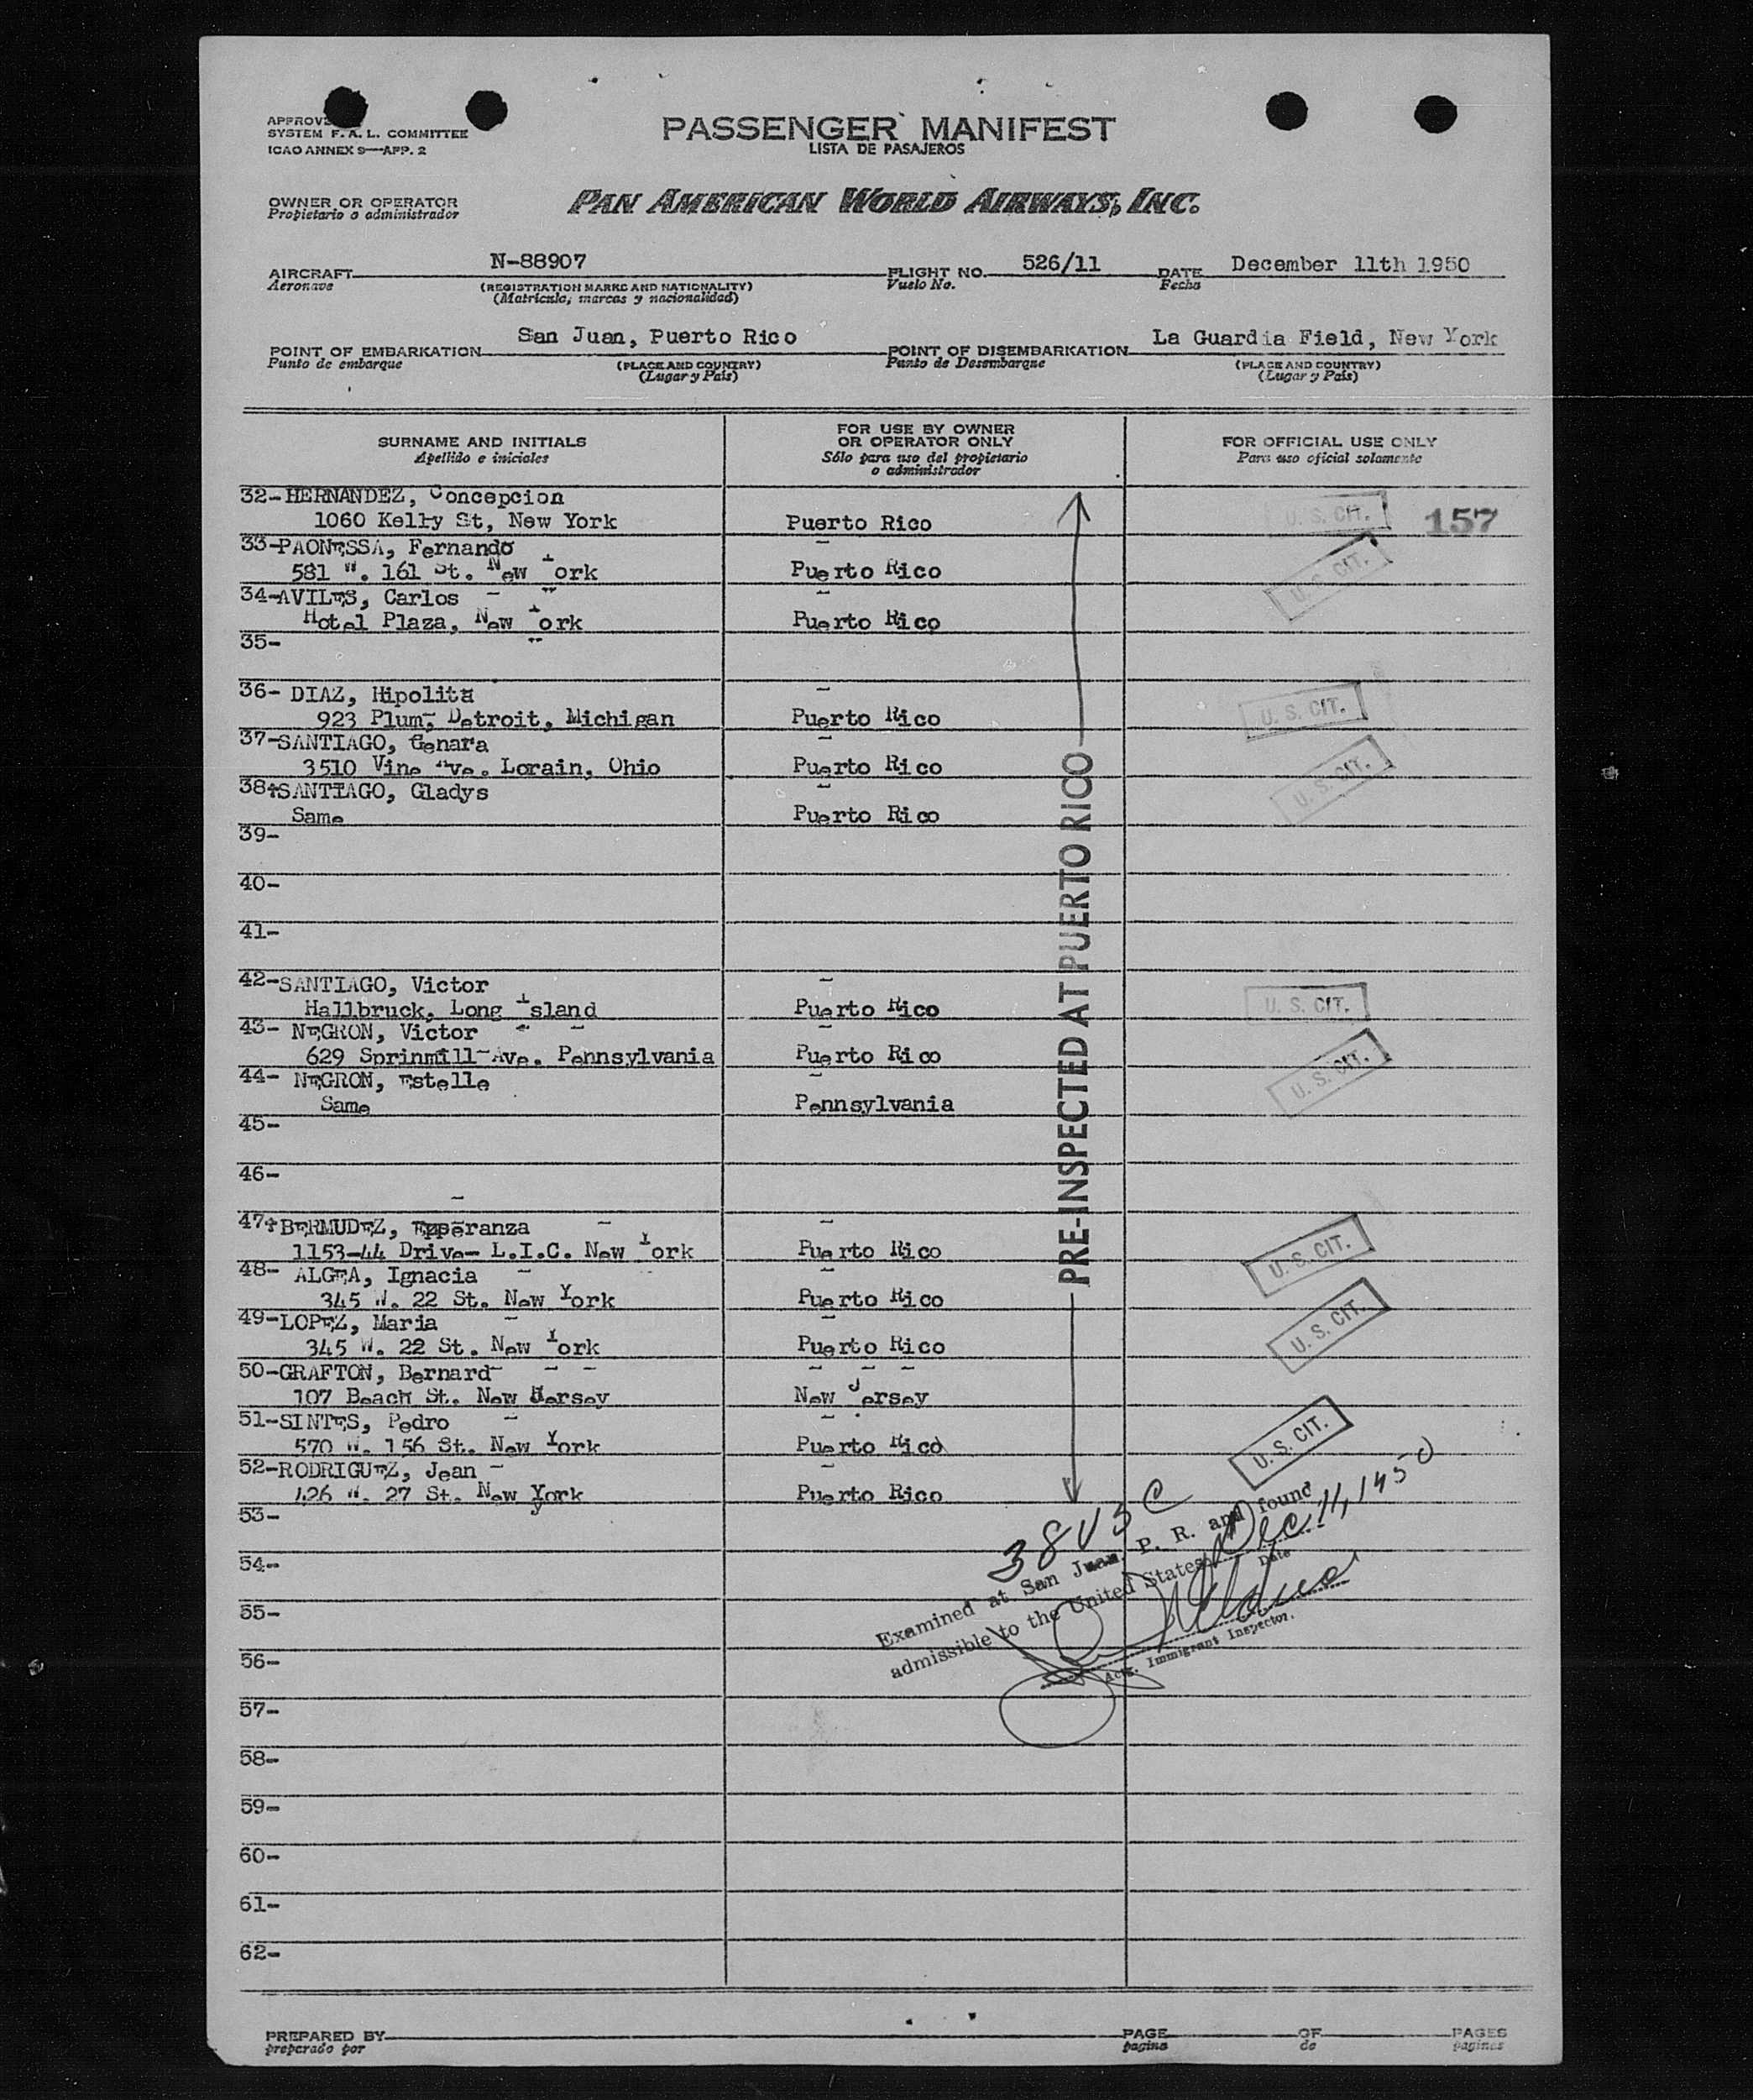 APPROVE
SYSTEM F. A. L. COMMITTEE
ICAO ANNEX 9—APP. 2
PASSENGER MANIFEST
LISTA DE PASAJEROS
OWNER OR OPERATOR
Propietario o administrador
PAN AMERICAN WORLD AIRWAYS, INC.
AIRCRAFT N-88907 FLIGHT NO. 526/11 DATE December 11th 1950
Aeronave (REGISTRATION MARKS AND NATIONALITY) Vuelo No. Fecha
(Matricula, marcas y nacionalidad)
POINT OF EMBARKATION San Juan, Puerto Rico POINT OF DISEMBARKATION La Guardia Field, New York
Punto de embarque (PLACE AND COUNTRY) Punto de Desembarque (PLACE AND COUNTRY)
(Lugar y País) (Lugar y País)
SURNAME AND INITIALS
Apellido e iniciales
FOR USE BY OWNER
OR OPERATOR ONLY
Sólo para uso del propietario
o administrador
FOR OFFICIAL USE ONLY
Para uso oficial solamente
32- HERNANDEZ, Concepcion
1060 Kelly St, New York Puerto Rico U. S. CIT. 157
33-PAONESSA, Fernando
581 W. 161 St. New York Puerto Rico U. S. CIT.
34-AVILES, Carlos
Hotel Plaza, New York Puerto Rico
35-
36- DIAZ, Hipolita
923 Plum, Detroit, Michigan Puerto Rico U. S. CIT.
37-SANTIAGO, Genara
3510 Vine Ave. Lorain, Ohio Puerto Rico U. S. CIT.
38-SANTIAGO, Gladys
Same Puerto Rico
39-
40-
41-
42-SANTIAGO, Victor
Hallbruck, Long Island Puerto Rico U. S. CIT.
43- NEGRON, Victor
629 Sprinmill Ave. Pennsylvania Puerto Rico U. S. CIT.
44- NEGRON, Estelle
Same Pennsylvania
45-
46-
47-BERMUDEZ, Esperanza
1153-44 Drive- L.I.C. New York Puerto Rico U. S. CIT.
48- ALGEA, Ignacia
345 W. 22 St. New York Puerto Rico
49-LOPEZ, Maria
345 W. 22 St. New York Puerto Rico U. S. CIT.
50-GRAFTON, Bernard
107 Beach St. New Jersey New Jersey
51-SINTES, Pedro
570 W. 156 St. New York Puerto Rico U. S. CIT.
52-RODRIGUEZ, Jean
426 W. 27 St. New York Puerto Rico
PRE-INSPECTED AT PUERTO RICO
53-
38 USC
Examined at San Juan, P. R. and found
admissible to the United States. Dec 11, 1950
Date
Actg. Immigrant Inspector.
54-
55-
56-
57-
58-
59-
60-
61-
62-
PREPARED BY PAGE OF PAGES
preparado por pagina de paginas